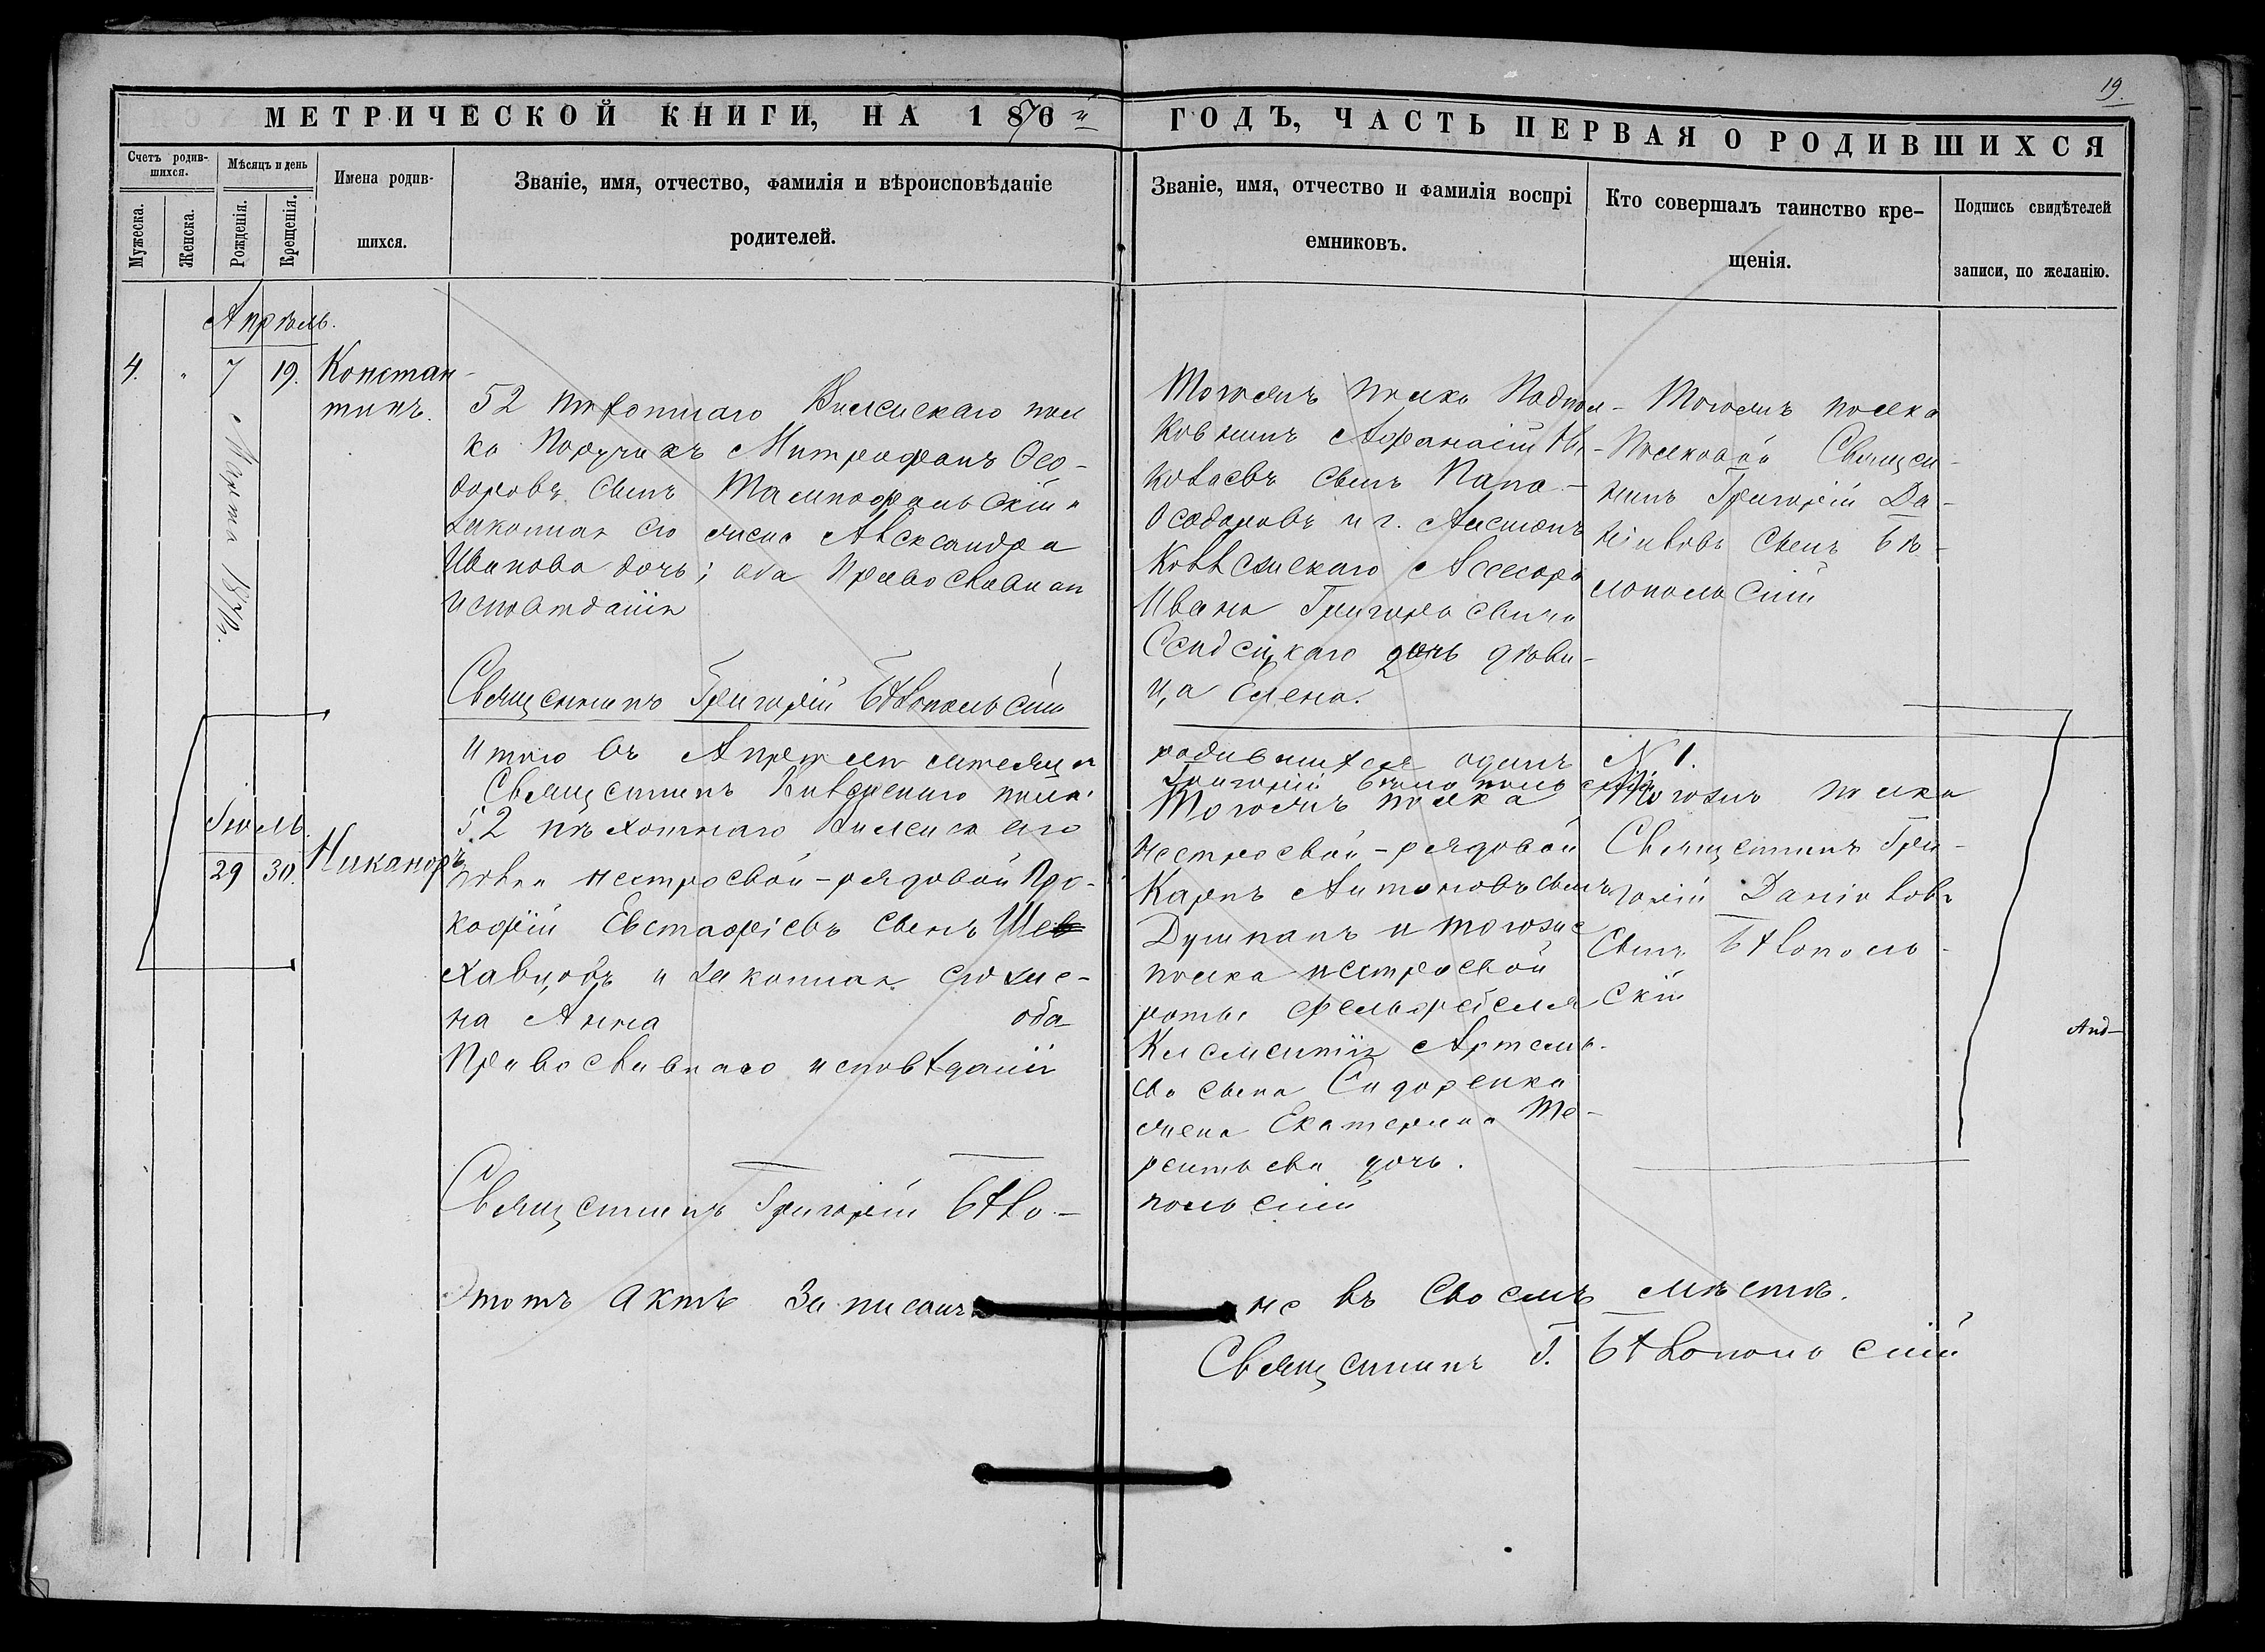 19.
МЕТРИЧЕСКОЙ КНИГИ, НА 1870й ГОДЪ, ЧАСТЬ ПЕРВАЯ О РОДИВШИХСЯ
Счетъ родив-
шихся.
Мужеска.
Женска.
Мѣсяцъ и день
Рожденія.
Крещенія.
Имена родив-
шихся.
Званіе, имя, отчество, фамилія и вѣроисповѣданіе
родителей.
Званіе, имя, отчество и фамилія воспрі
емниковъ.
Кто совершалъ таинство кре-
щенія.
Подпись свидѣтелей
записи, по желанію.
Апрѣль.
4. " 7 19.
Марта 1870.
Констан-
тинъ.
52 пѣхотнаго Виленскаго пол
ка Поручикъ Митрофанъ Ѳео-
доровъ сынъ
законная его жена Александра
Иванова дочь; оба Православнаго
исповѣданія
Священникъ Григорій Бѣлопольскій
Тогожъ полка Подпол-
ковникъ Афанасій Ни-
колаевъ сынъ Папа-
Ѳеодоровъ и г.
Коллежскаго Ассесора
Ивана Григорьевича
дочь дѣви-
ца Елена.
Тогожъ полка
Полковой Священ-
никъ Григорій Да-
ніиловъ сынъ Бѣ-
лопольскій
Итого въ Апрѣлѣ мѣсяцѣ родившихся одинъ N 1.
Священникъ Виленскаго полка Григорій Бѣлопольскій
Іюль.
29 30.
Никаноръ
52 пѣхотнаго Виленскаго
полка нестроевой-рядовой Про-
кофій Евстафіевъ сынъ Ше
хавцовъ и законная его же-
на Анна оба
Православнаго исповѣданія
Священникъ Григорій Бѣло-
польскій
Тогожъ полка
нестроевой-рядовой
Карпъ Антоновъ сынъ
Душпанъ и тогоже
полка нестроевой
роты фельдфебеля
Клементія Артемь-
ева сына Сидоренка
жена Екатерина Те-
рентьева дочь.
Тогожъ полка
Священникъ Гри-
горій Даніиловъ
сынъ Бѣлополь-
скій
Этотъ актъ записанъ не въ своемъ мѣстѣ.
Священникъ Г. Бѣлопольскій